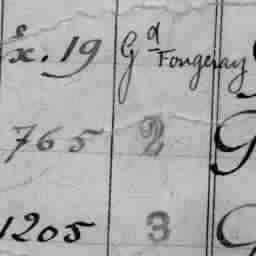 x. 19 Gd Fougeray
765 2 G
1205 3 G